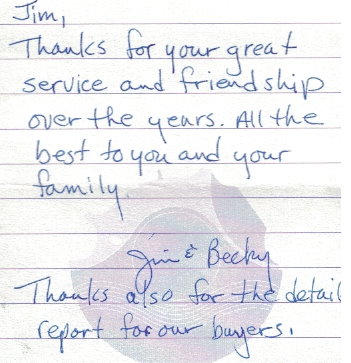 Jim,
Thanks for your great
service and friendship
over the years. All the
best to you and your
family.
Jim & Becky
Thanks also for the detail
report for our buyers.